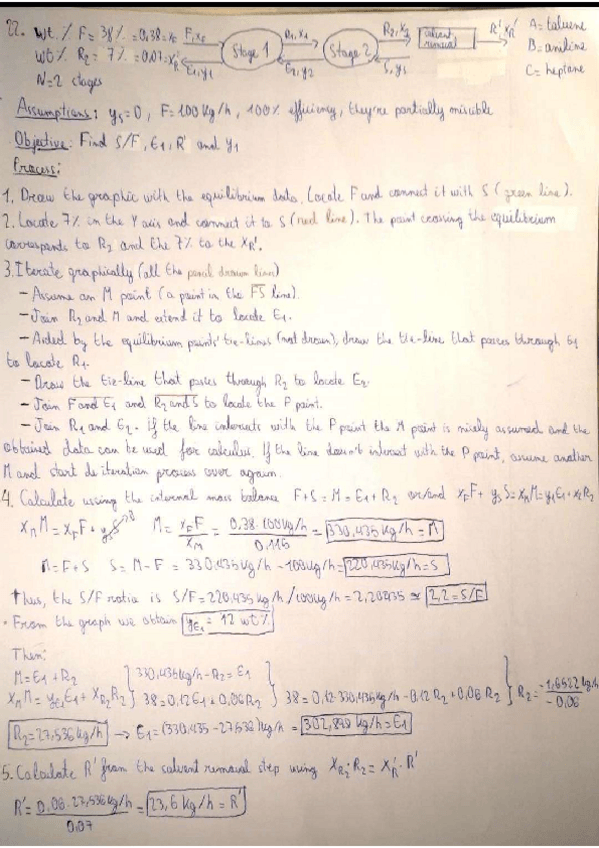 22. Wt. % F = 38% = 0.38 = x_F F, x_F R_1, x_1 R_2, x_2 solvent removal R' x_R' A = toluene
wt % R_2 = 7% = 0.07 = x_R' Stage 1 Stage 2 B = aniline
N=2 stages E_1, y_1 E_2, y_2 S, y_s C = heptane
Assumptions: y_s = 0, F = 100 Kg/h, 100% efficiency, they're partially miscible
Objective: Find S/F, E_1, R' and y_1
Process:
1. Draw the graphic with the equilibrium data. Locate F and connect it with S (green line).
2. Locate 7% in the Y axis and connect it to S (red line). The point crossing the equilibrium
corresponds to R_2 and the 7% to the X_R'.
3. Iterate graphically (all the pencil drawn lines)
- Assume an M point (a point in the FS line).
- Join R_2 and M and extend it to locate E_1.
- Aided by the equilibrium points' tie-lines (not drawn), draw the tie-line that passes through E_1
to locate R_1.
- Draw the tie-line that passes through R_2 to locate E_2.
- Join F and E_1 and R_2 and S to locate the P point.
- Join R_1 and E_2. If the line intersects with the P point the M point is nicely assumed and the
obtained data can be used for calculus. If the line doesn't interset with the P point, assume another
M and start de iteration process over again.
4. Calculate using the internal mass balance F+S = M = E_1 + R_2 or/and x_F F + y_s S = x_M M = y_1 E_1 + x_2 R_2
X_M M = x_F F + y_s S^0 M = x_F F / x_M = 0.38 · 100 kg/h / 0.115 = 330.435 kg/h = M
M = F + S S = M - F = 330.435 kg/h - 100 kg/h = 220.435 kg/h = S
Thus, the S/F ratio is S/F = 220.435 kg/h / 100 kg/h = 2.20435 ≅ 2.2 = S/F
· From the graph we obtain y_E1 = 12 wt %
Then:
M = E_1 + R_2 } 330.435 kg/h - R_2 = E_1
X_M M = y_E1 E_1 + X_R2 R_2 } 38 = 0.12 E_1 + 0.06 R_2 } 38 = 0.12 · 330.435 kg/h - 0.12 R_2 + 0.06 R_2 } R_2 = -1.6522 kg/h / -0.06
R_2 = 27.536 kg/h → E_1 = (330.435 - 27.536) kg/h = 302.899 kg/h = E_1
5. Calculate R' from the solvent removal step using X_R2 · R_2 = X_R' · R'
R' = 0.06 · 27.536 kg/h / 0.07 = 23.6 kg/h = R'